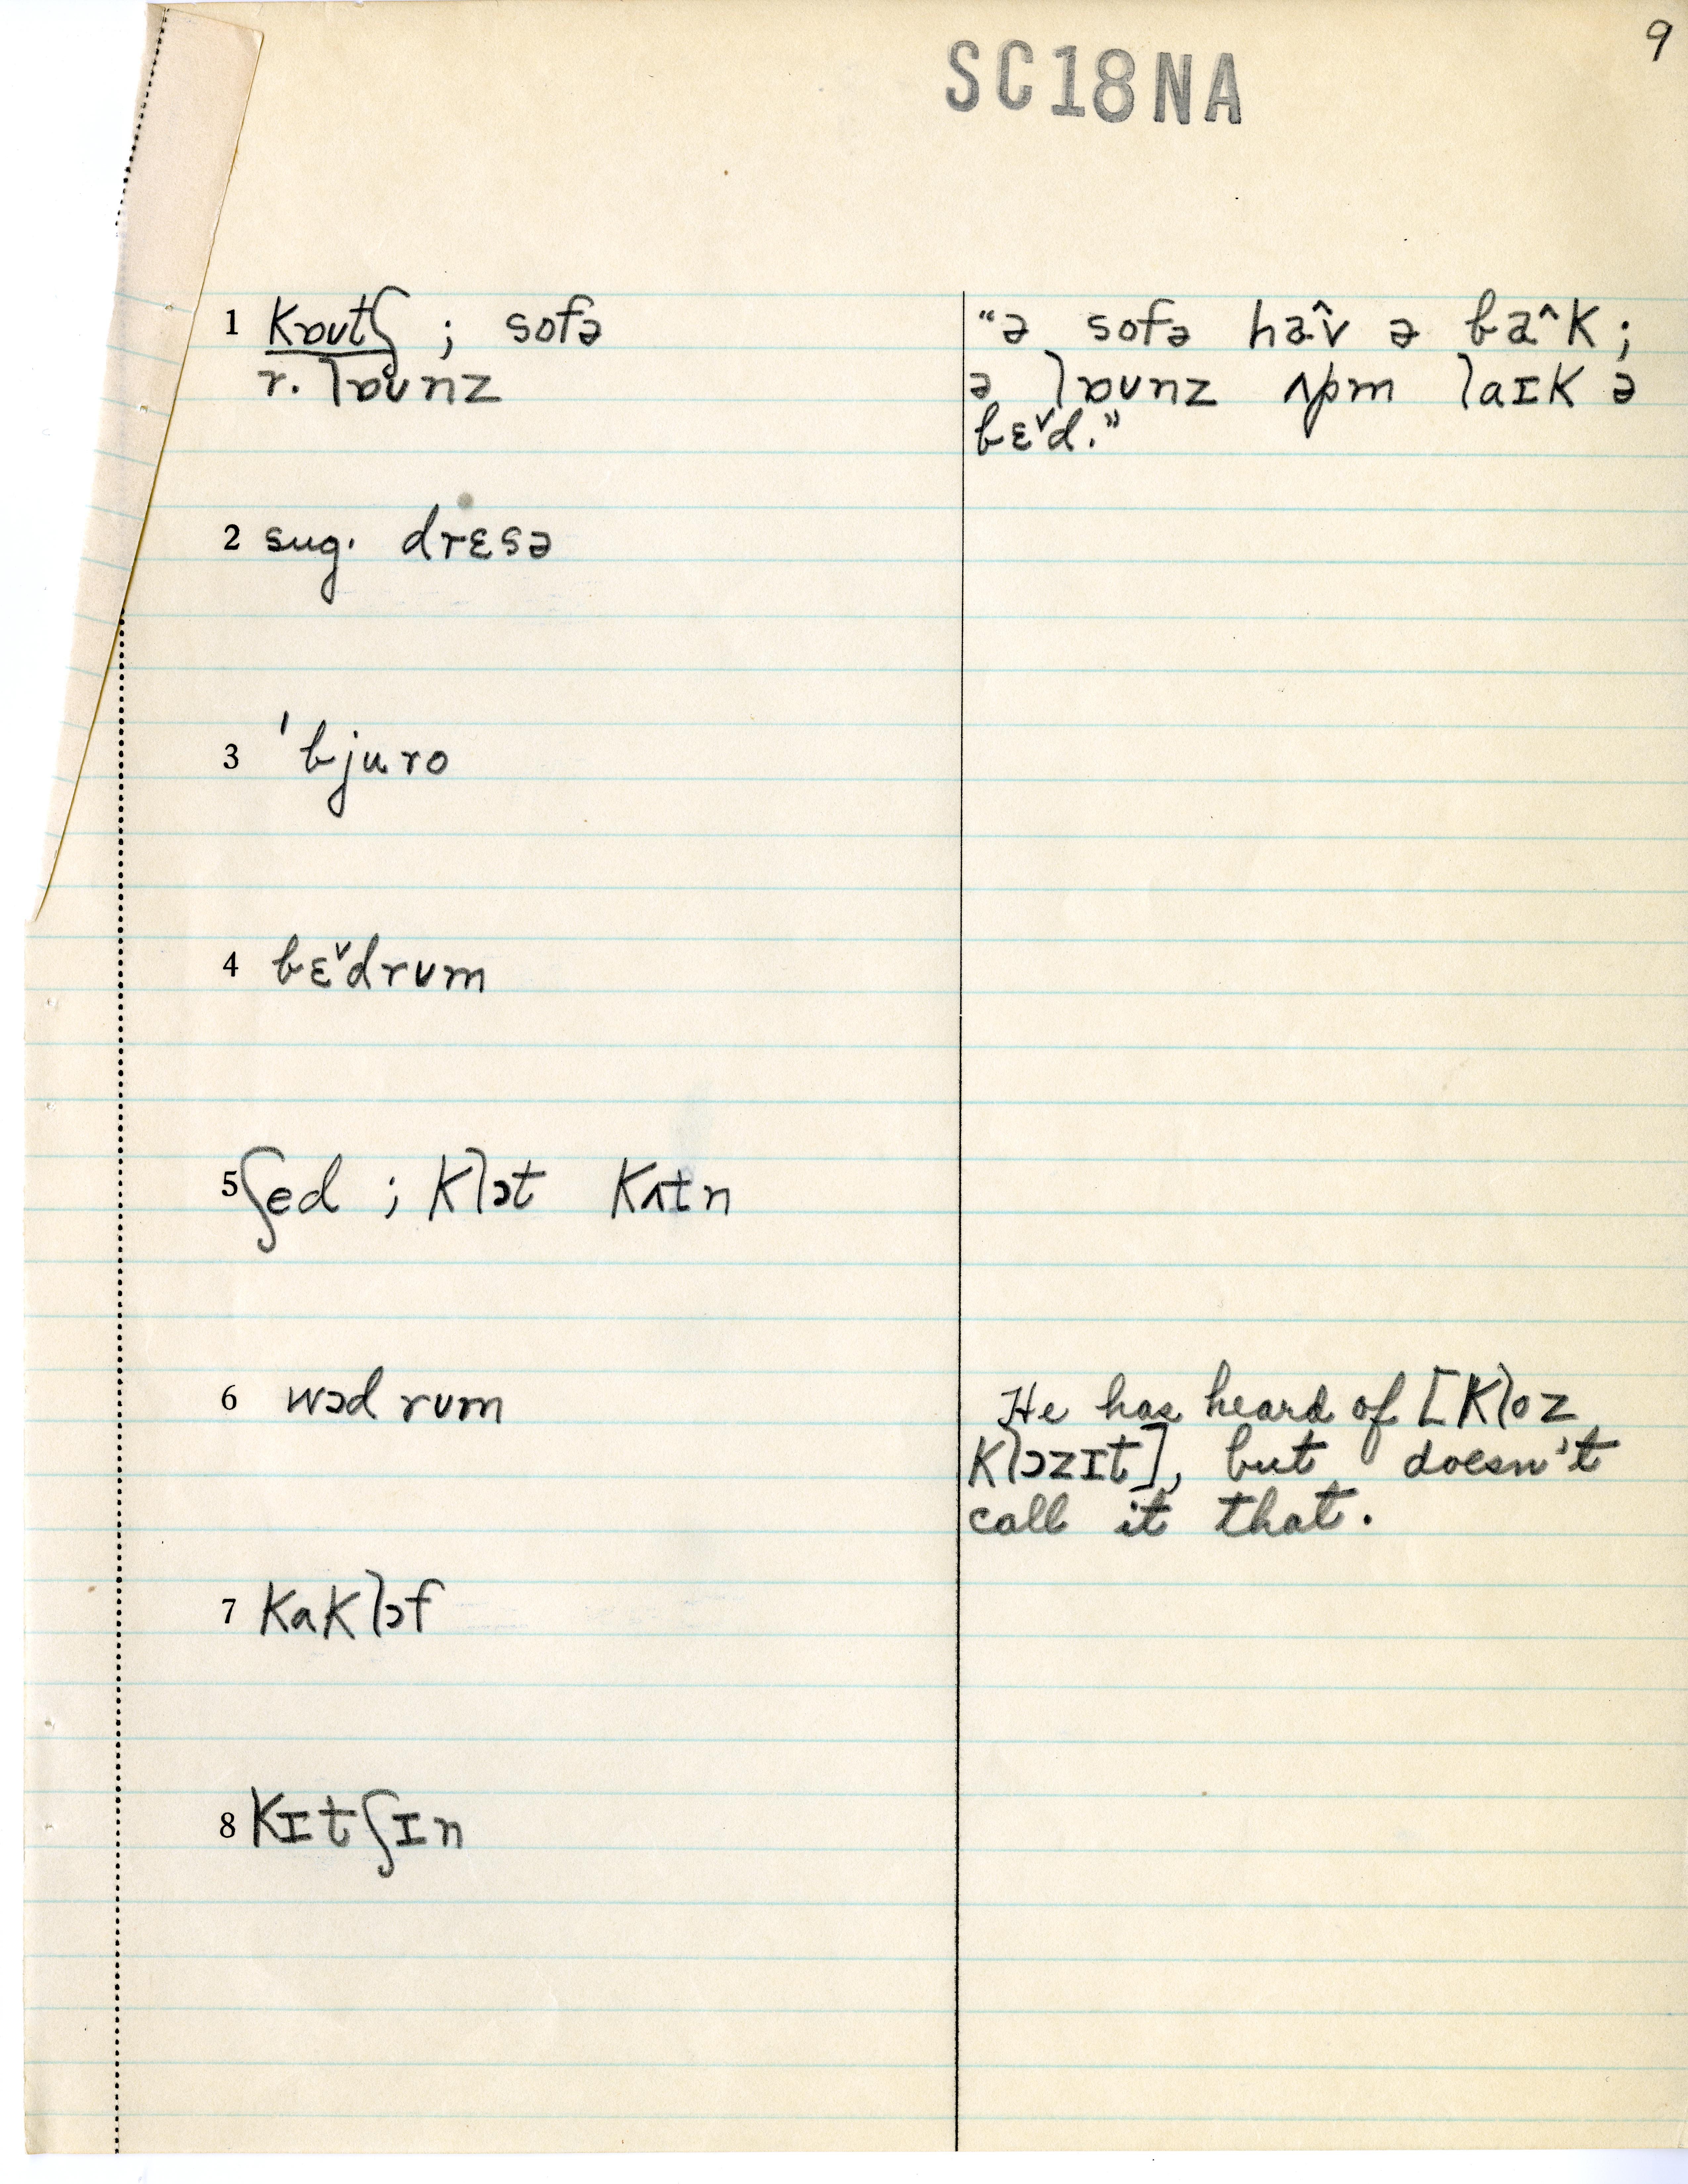 9
SC18NA
1 kɒʊtʃ ; sofə
r. lɒʊnz
"ə sofə haˆv ə baˆk ;
ə lɒʊnz ʌpm laɪk ə
bɛˇd."
2 sug. drɛsə
3 ˈbjuro
4 bɛˇdrʊm
5 ʃed ; klɔt kʌtn
6 wɔd rʊm
He has heard of [kloz
klɔzɪt], but doesn't
call it that.
7 kaklɔf
8 kɪtʃɪn